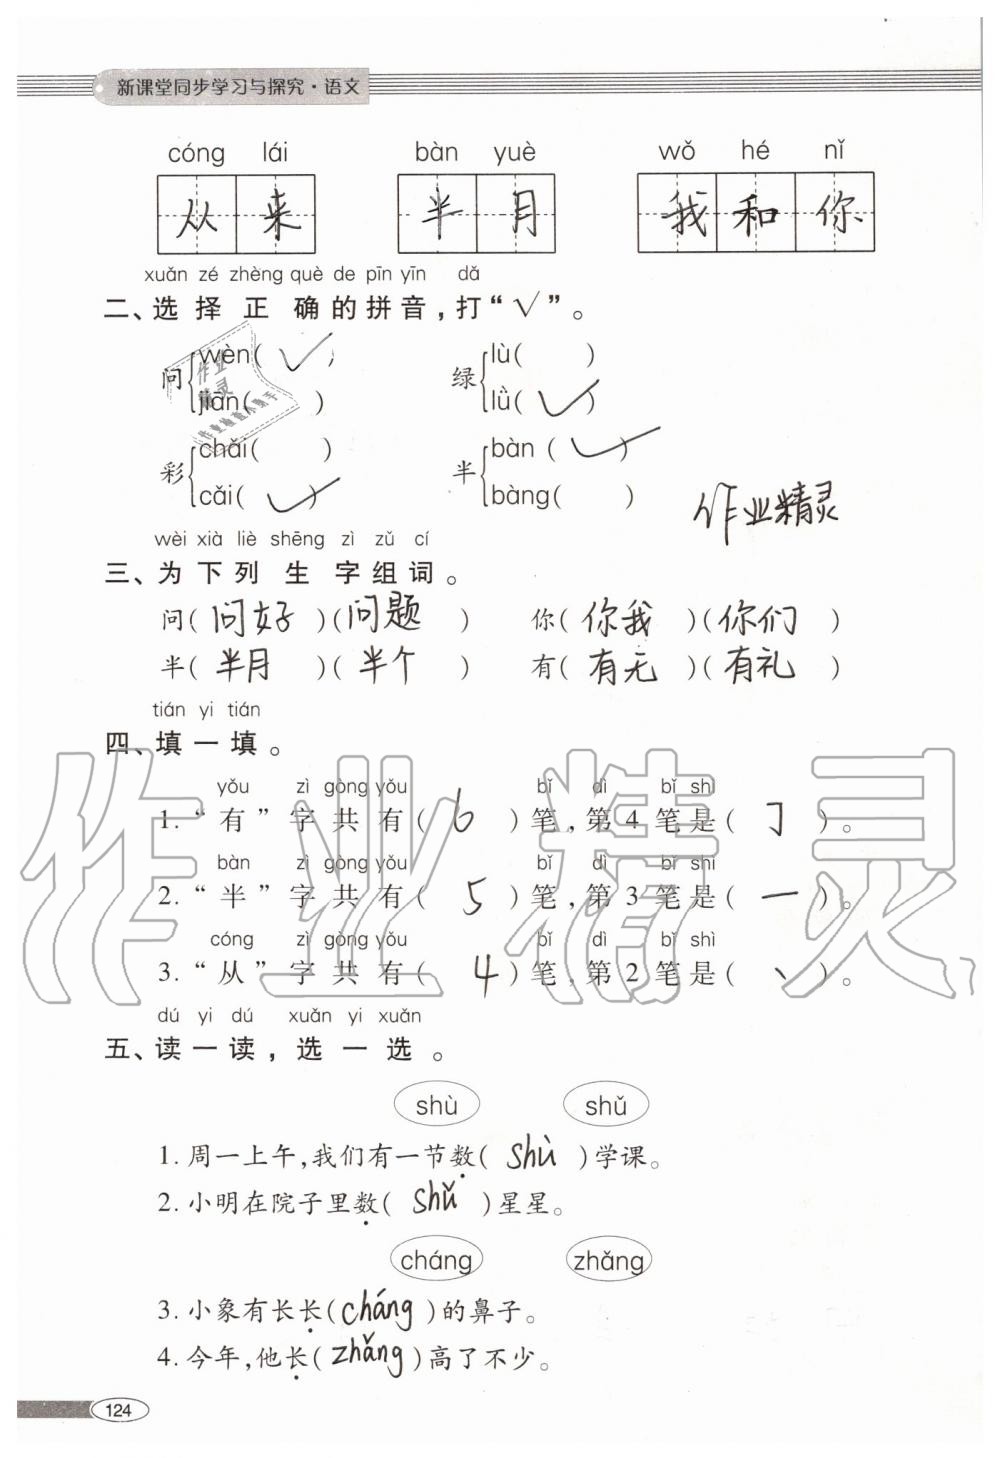 新课堂同步学习与探究·语文
cóng lái bàn yuè wǒ hé nǐ
从来 半月 我和你
xuǎn zé zhèng què de pīn yīn dǎ
二、选择正确的拼音,打“√”。
问 wèn( √ ) jiān( )
绿 lù( ) lǜ( √ )
彩 chǎi( ) cǎi( √ )
半 bàn( √ ) bàng( )
作业精灵
wèi xià liè shēng zì zǔ cí
三、为下列生字组词。
问( 问好 )( 问题 ) 你( 你我 )( 你们 )
半( 半月 )( 半个 ) 有( 有无 )( 有礼 )
tián yi tián
四、填一填。
yǒu zì gòng yǒu bǐ dì bǐ shì
1.“有”字共有( 6 )笔,第4笔是( ㇆ )。
bàn zì gòng yǒu bǐ dì bǐ shì
2.“半”字共有( 5 )笔,第3笔是( 一 )。
cóng zì gòng yǒu bǐ dì bǐ shì
3.“从”字共有( 4 )笔,第2笔是( 丶 )。
dú yi dú xuǎn yi xuǎn
五、读一读,选一选。
shù shǔ
1.周一上午,我们有一节数( shù )学课。
2.小明在院子里数( shǔ )星星。
cháng zhǎng
3.小象有长长( cháng )的鼻子。
4.今年,他长( zhǎng )高了不少。
124
作业精灵